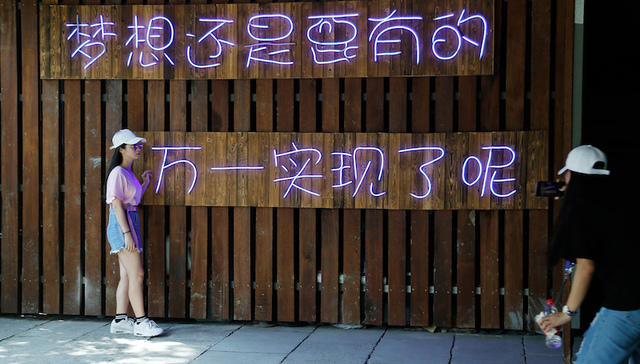 梦想还是要有的
万一实现了呢